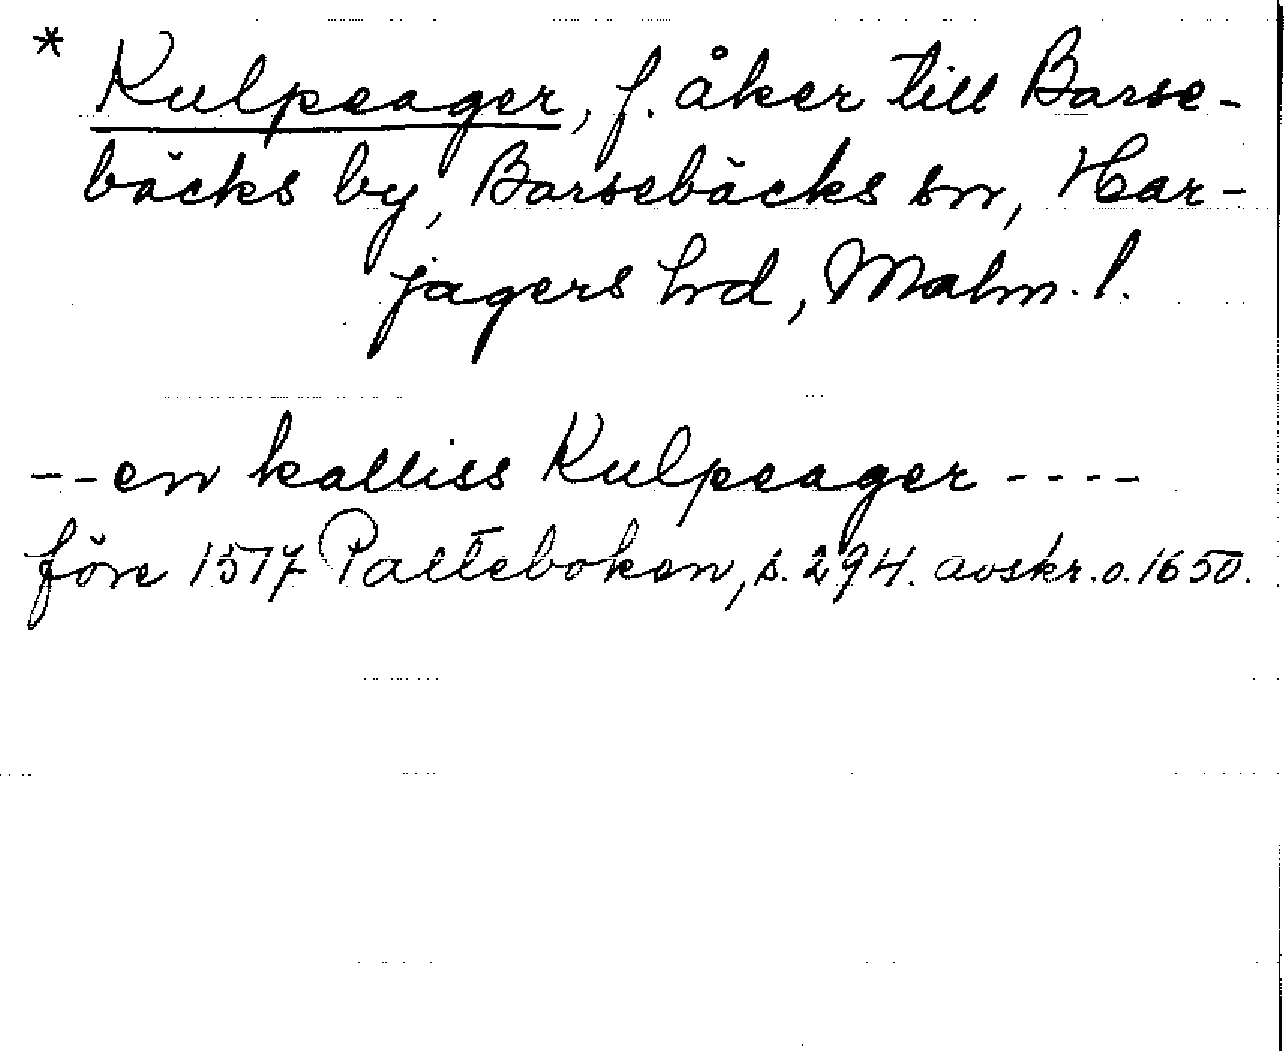 * Kulpeager, f. åker till Barse-
bäcks by, Barsebäcks sn, Har-
jagers hd, Malm. l.
--en kalliss Kulpeager ----
före 1517 Palteboken, s. 294. avskr. o. 1650.